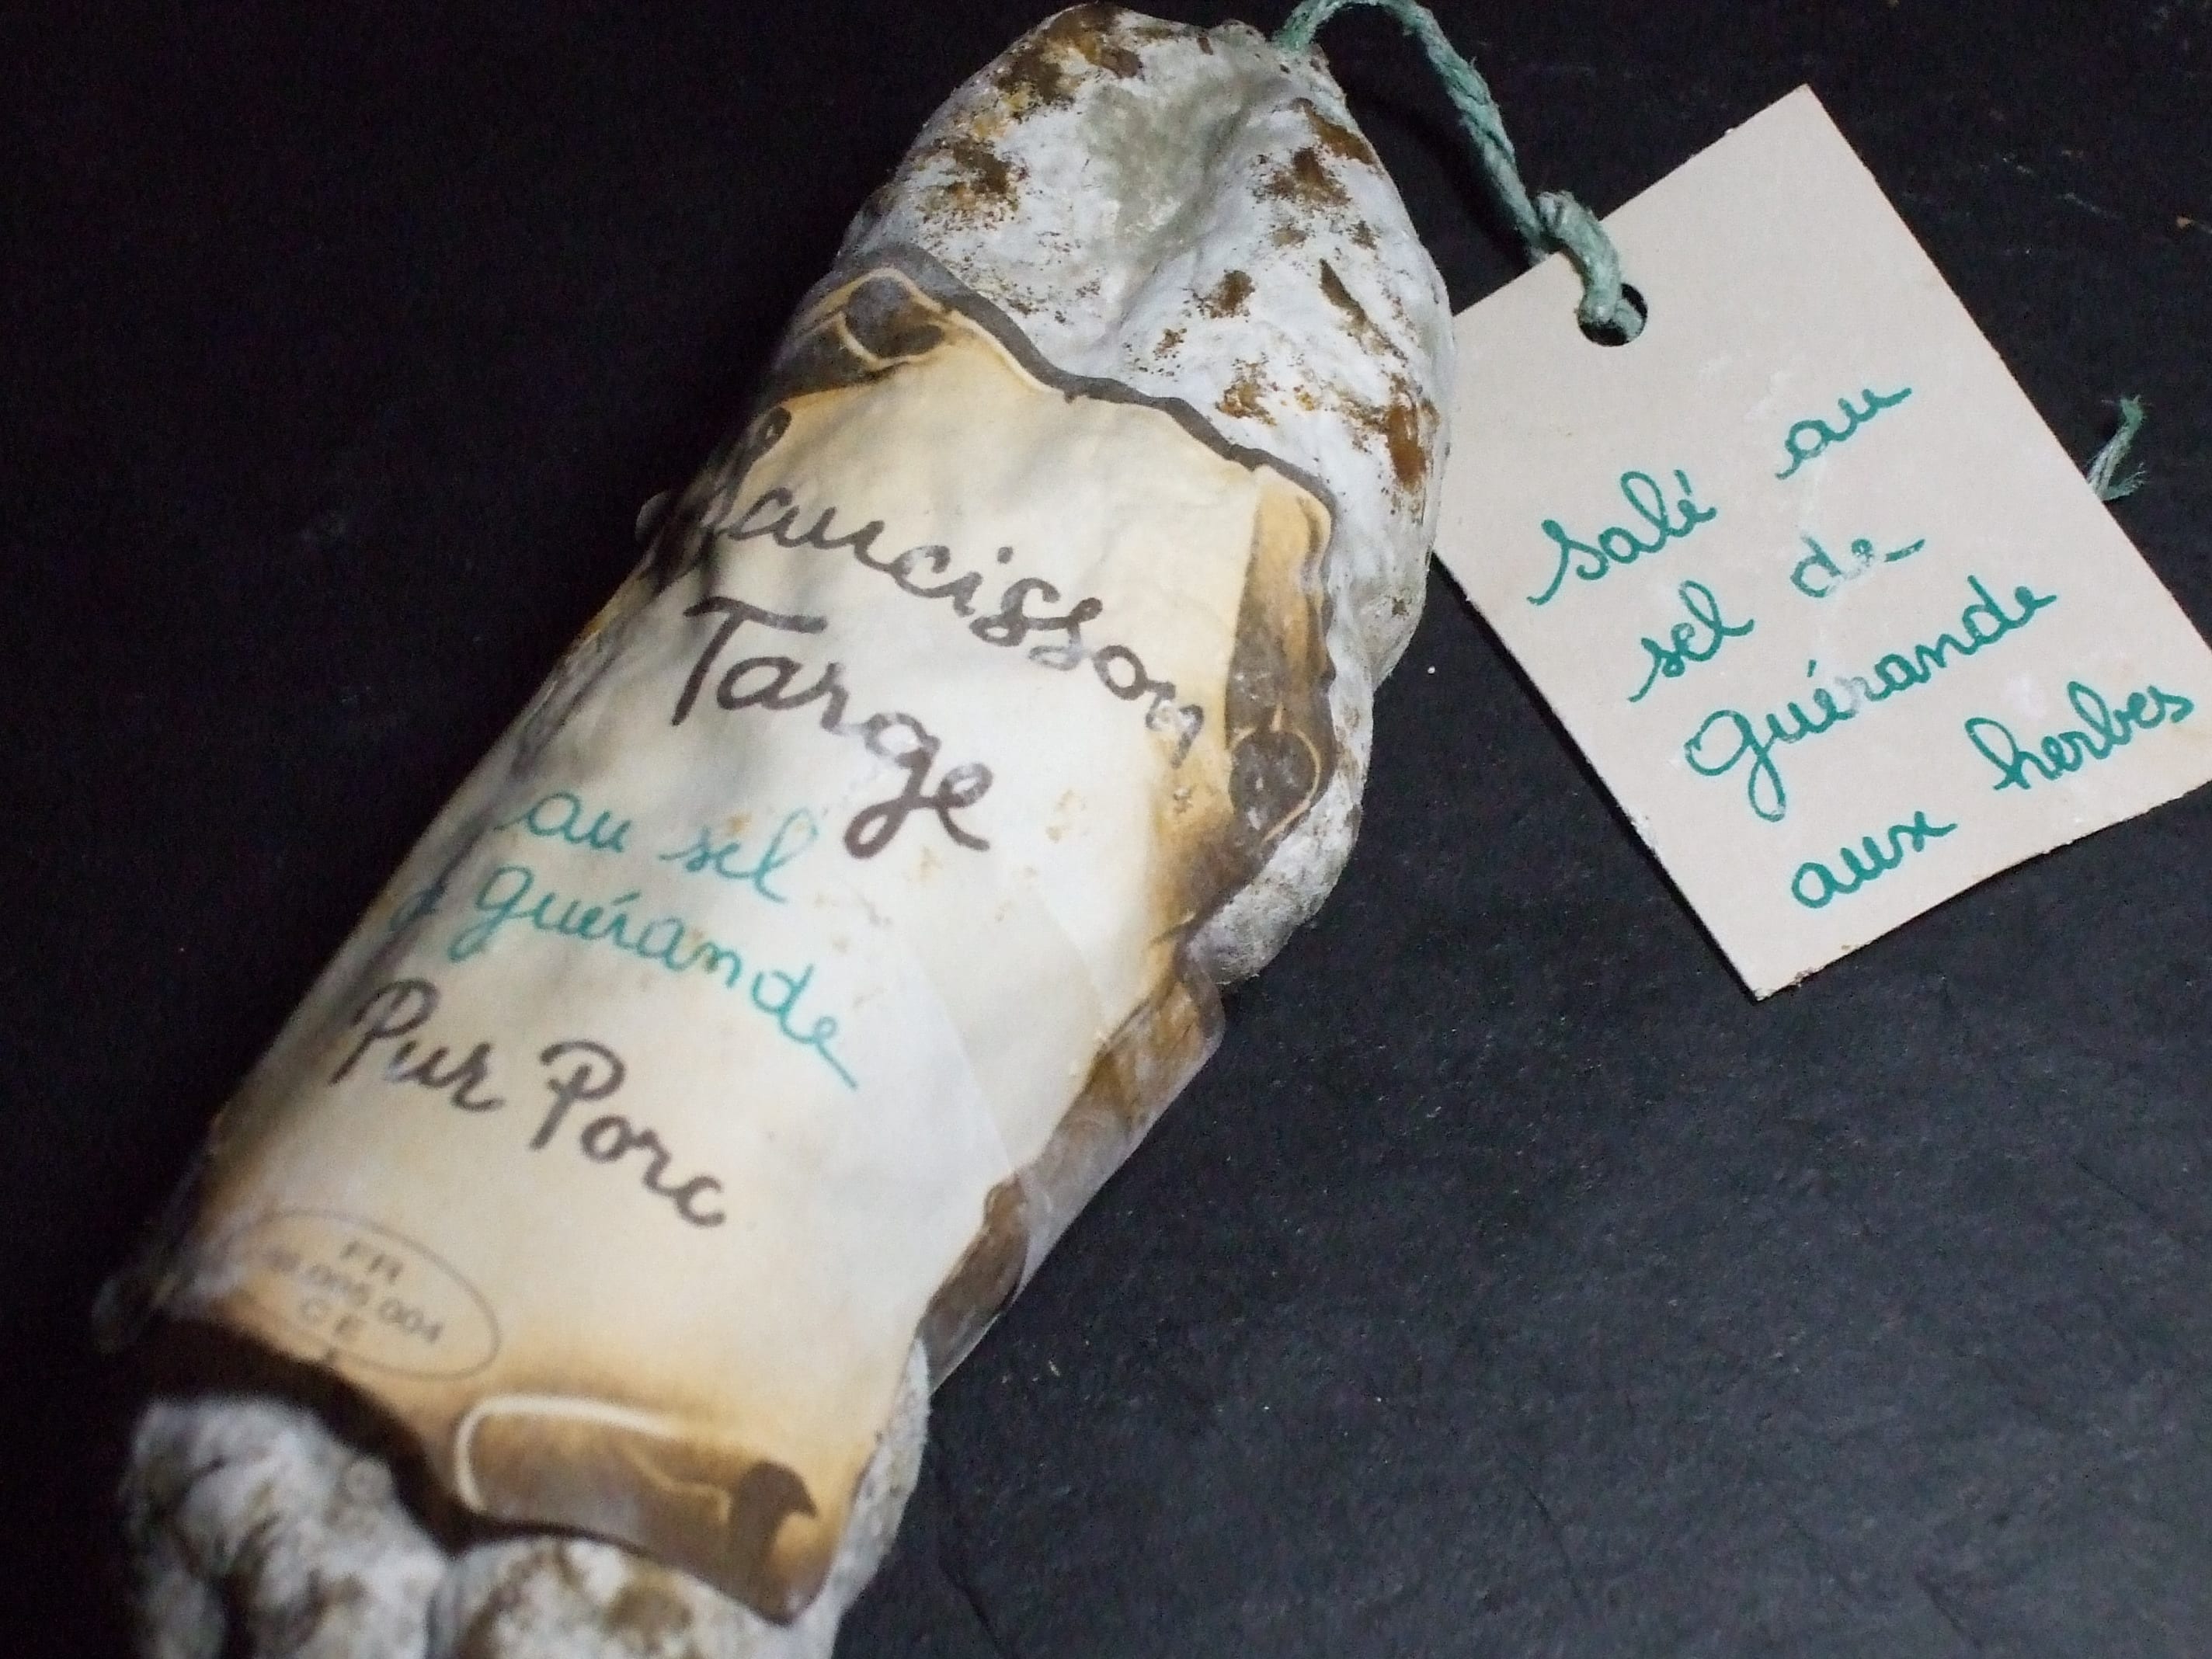 Saucisson
Targe
au sel
d guérande
Pur Porc
FR
CE
Salé au
sel de
guérande
aux herbes